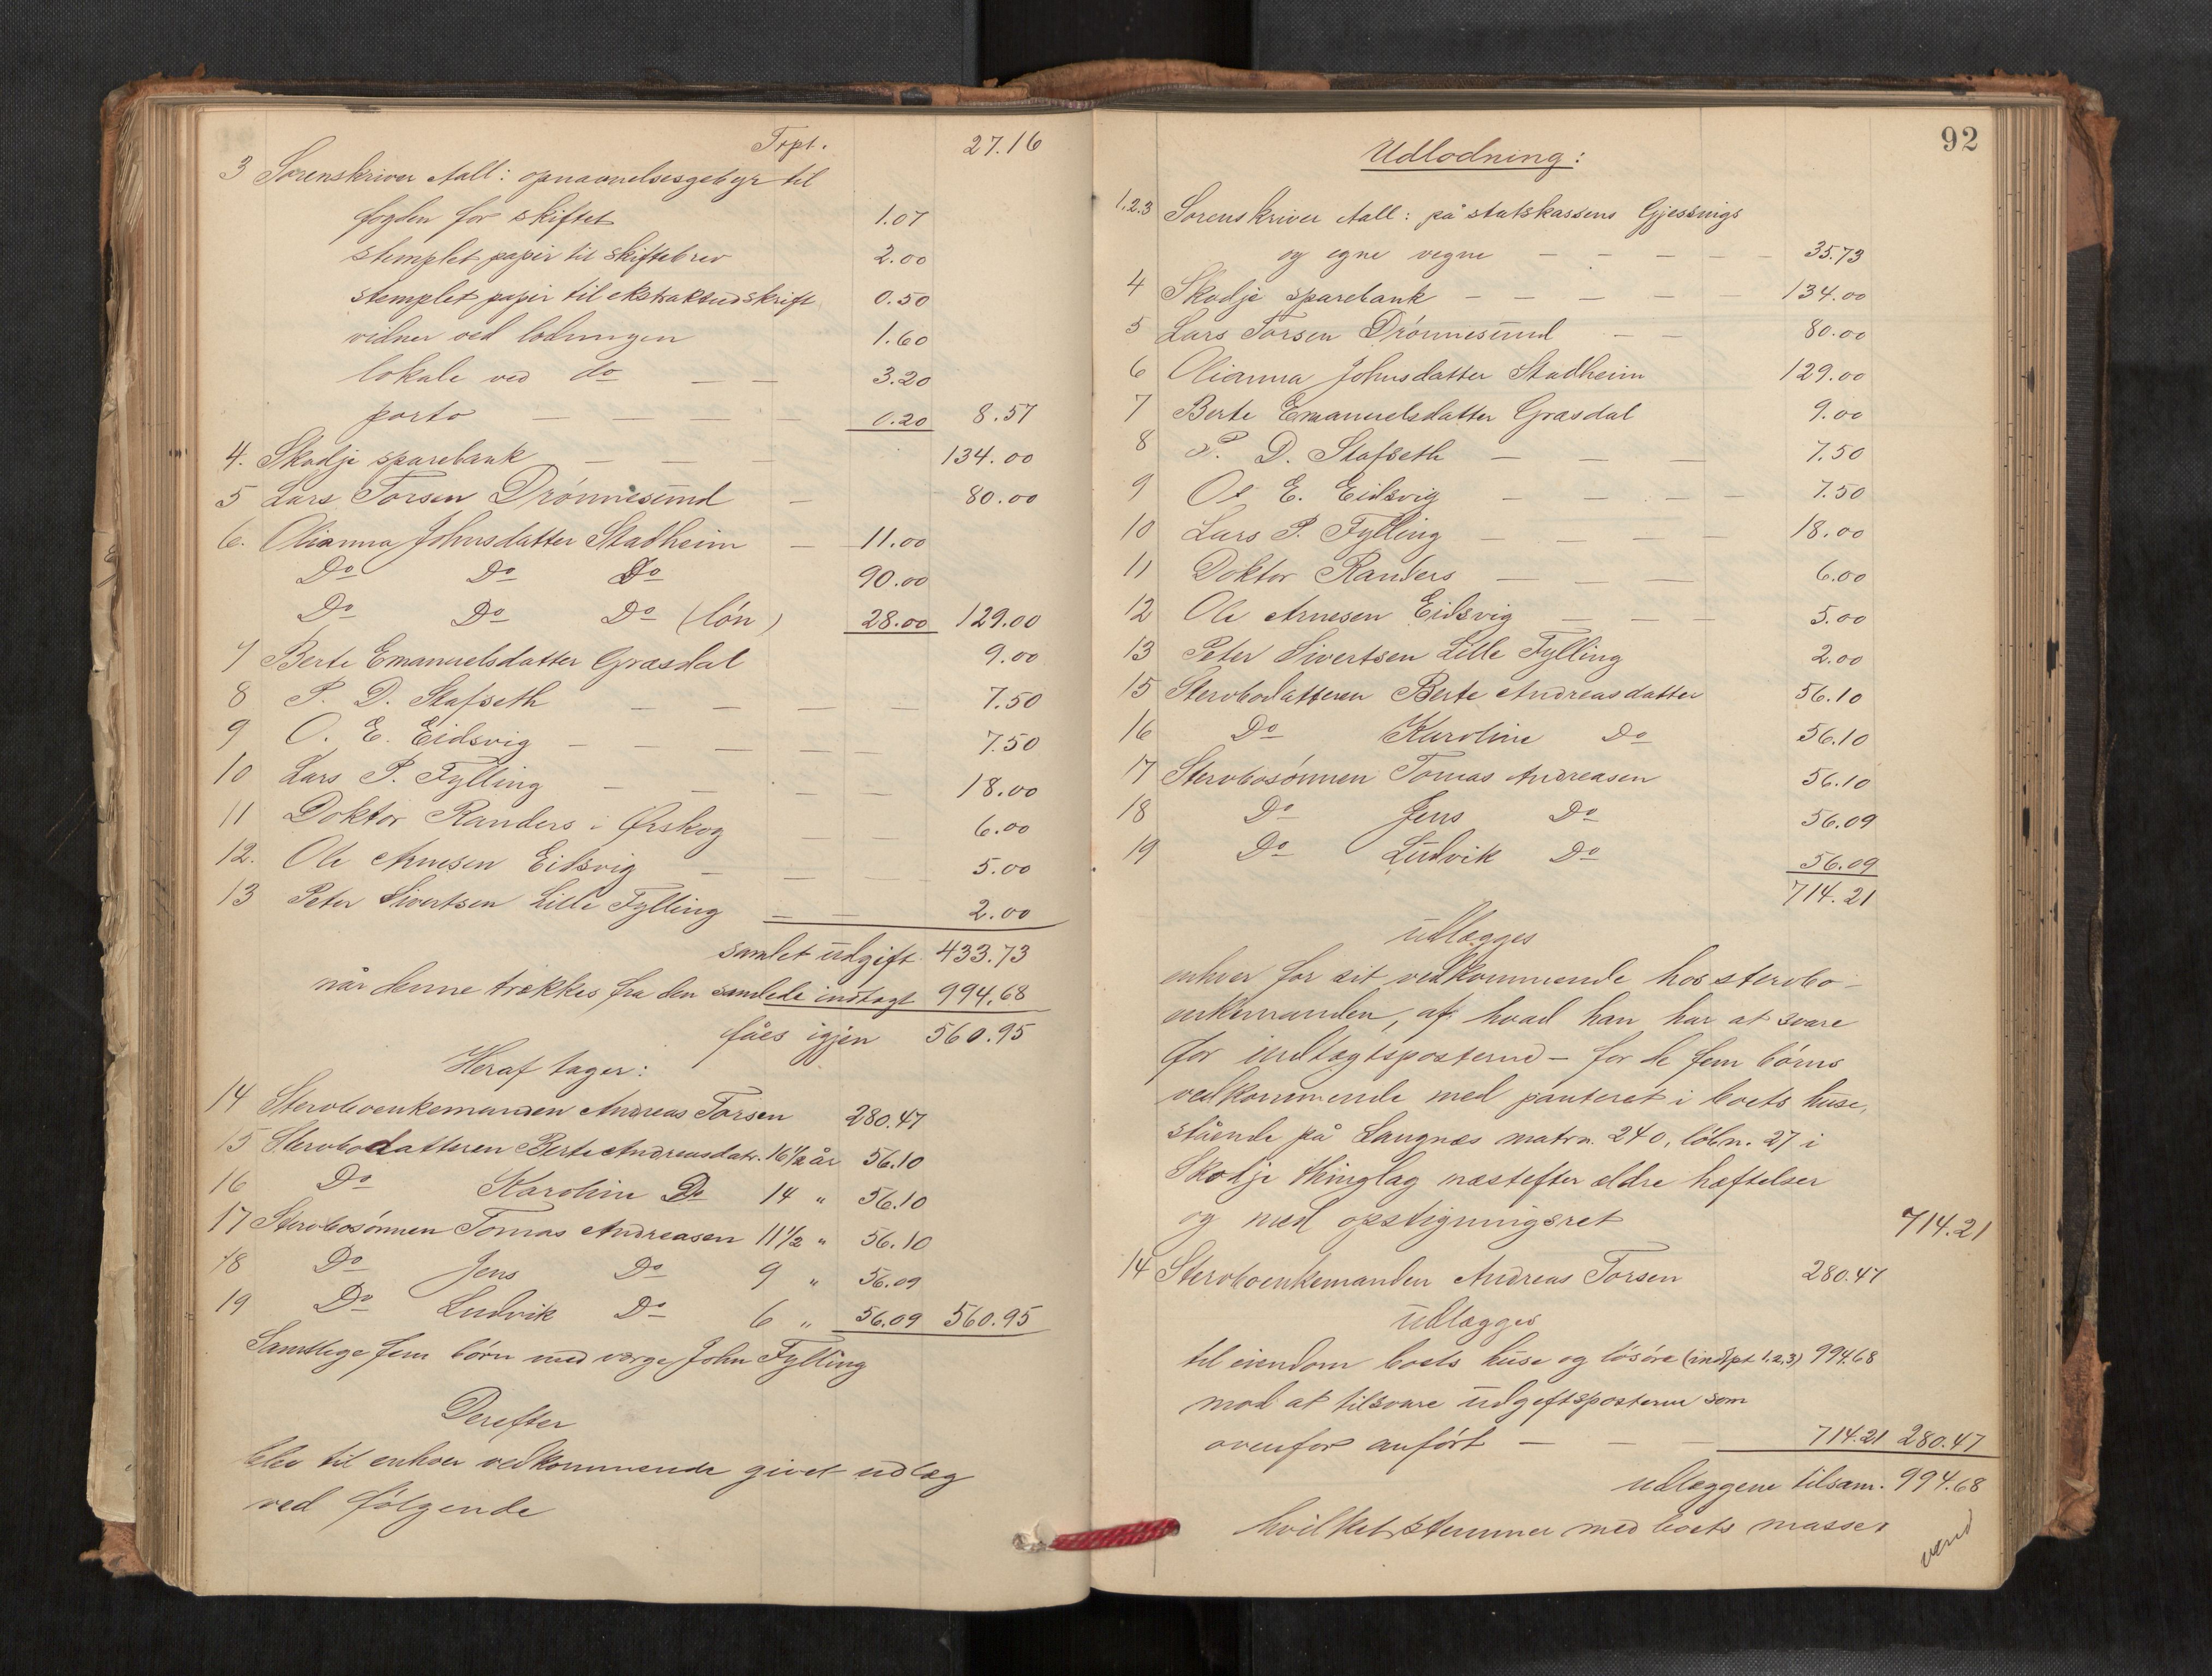 Trpt. 27.16
3 Sorenskriver Aall: opnævnelsesgebyr til
fogden for skiftet 1.07
stemplet papir til skiftebrev 2.00
stemplet papir til ekstraktudskrift 0.50
vidner ved lodningen 1.60
lokale ved do — — 3.20
porto — — — — 0.20 8.57
4. Skodje sparebank — — — 134.00
5 Lars Torsen Drönnesund — 80.00
6. Olianna Johnsdatter Stadheim — 11.00
Do Do Do 90.00
Do Do Do (lön) 28.00 129.00
7 Berte Emanuelsdatter Grasdal 9.00
8 P. D. Stafseth — — — — — 7.50
9 O. E. Eidsvig — — — — — 7.50
10 Lars P. Fylling — — — — 18.00
11 Doktor Randers i Ørskog — — 6.00
12. Ole Arnesen Eidsvig — — — — 5.00
13 Peter Sivertsen Lille Fylling — — 2.00
samlet udgift 433.73
når denne trækkes fra den samlede indtægt 994.68
fåes igjen 560.95
Heraf tager:
14 Stervboenkemanden Andreas Torsen 280.47
15 Stervbodatteren Berte Andreasdatr. 16½ år 56.10
16 Do Karoline Do 14 " 56.10
17 Stervbosönnen Tomas Andreasen 11½ " 56.10
18 Do Jens Do 9 " 56.09
19 Do Ludvik Do 6 " 56.09 560.95
Samtlige fem börn med værge John Fylling
Derefter
blev til enhver vedkommende givet udlæg
ved følgende
92
Udlodning:
1.2.3 Sorenskriver Aall: på statskassens Gjessings
og egne vegne — — — — — 35.73
4 Skodje sparebank — — — — — 134.00
5 Lars Torsen Drönnesund — — 80.00
6 Olianna Johnsdatter Stadheim 129.00
7 Berte Emanuelsdatter Grasdal 9.00
8 P. D. Stafseth — — — 7.50
9 O. E. Eidsvig — — — — 7.50
10 Lars P. Fylling — — — — 18.00
11 Doktor Randers — — — 6.00
12 Ole Arnesen Eidsvig — — — 5.00
13 Peter Sivertsen Lille Fylling 2.00
15 Stervbodatteren Berte Andreasdatter 56.10
16 Do Karoline Do 56.10
17 Stervbosönnen Tomas Andreasen 56.10
18 Do Jens Do 56.09
19 Do Ludvik Do 56.09
714.21
udlægges
enhver for sit vedkommende hos stervbo-
enkemanden, af hvad han har at svare
for indtægtsposterne – for de fem börns
vedkommende med panteret i boets huse,
stående på Langnæs matrn. 240, löbn. 27 i
Skodje thinglag næstefter ældre hæftelser
og med opstigningsret 714.21
14 Stervboenkemanden Andreas Torsen 280.47
udlægges
til eiendom boets huse og lösöre (indtpt 1.2.3) 994.68
mod at tilsvare udgiftsposterne som
ovenfor anfört — — — 714.21 280.47
udlæggene tilsam. 994.68
hvilket stemmer med boets masse.
vend